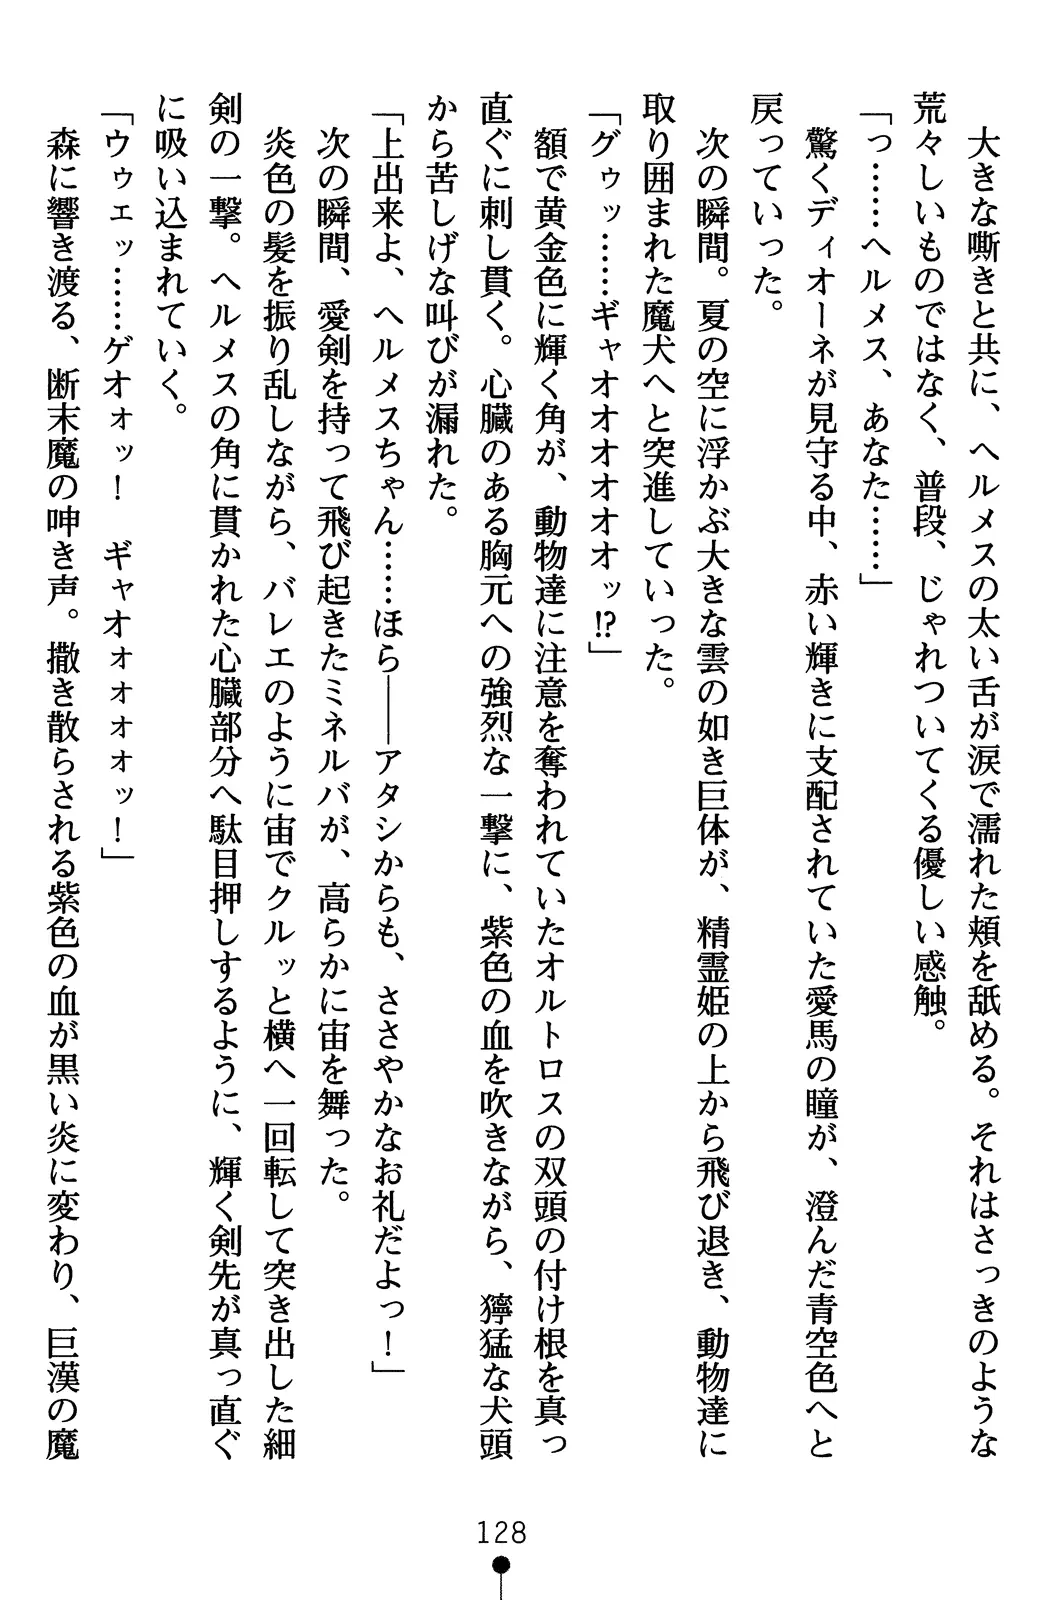 大きな嘶きと共に、ヘルメスの太い舌が涙で濡れた頬を舐める。それはさっきのような
荒々しいものではなく、普段、じゃれついてくる優しい感触。
「っ……ヘルメス、あなた……」
　驚くディオーネが見守る中、赤い輝きに支配されていた愛馬の瞳が、澄んだ青空色へと
戻っていった。
　次の瞬間。夏の空に浮かぶ大きな雲の如き巨体が、精霊姫の上から飛び退き、動物達に
取り囲まれた魔犬へと突進していった。
「グゥッ……ギャオオオオオオッ!?」
　額で黄金色に輝く角が、動物達に注意を奪われていたオルトロスの双頭の付け根を真っ
直ぐに刺し貫く。心臓のある胸元への強烈な一撃に、紫色の血を吹きながら、獰猛な犬頭
から苦しげな叫びが漏れた。
「上出来よ、ヘルメスちゃん……ほら――アタシからも、ささやかなお礼だよっ！」
　次の瞬間、愛剣を持って飛び起きたミネルバが、高らかに宙を舞った。
　炎色の髪を振り乱しながら、バレエのように宙でクルッと横へ一回転して突き出した細
剣の一撃。ヘルメスの角に貫かれた心臓部分へ駄目押しするように、輝く剣先が真っ直ぐ
に吸い込まれていく。
「ウゥェッ……ゲオォッ！　ギャオォォォォッ！」
　森に響き渡る、断末魔の呻き声。撒き散らされる紫色の血が黒い炎に変わり、巨漢の魔
128